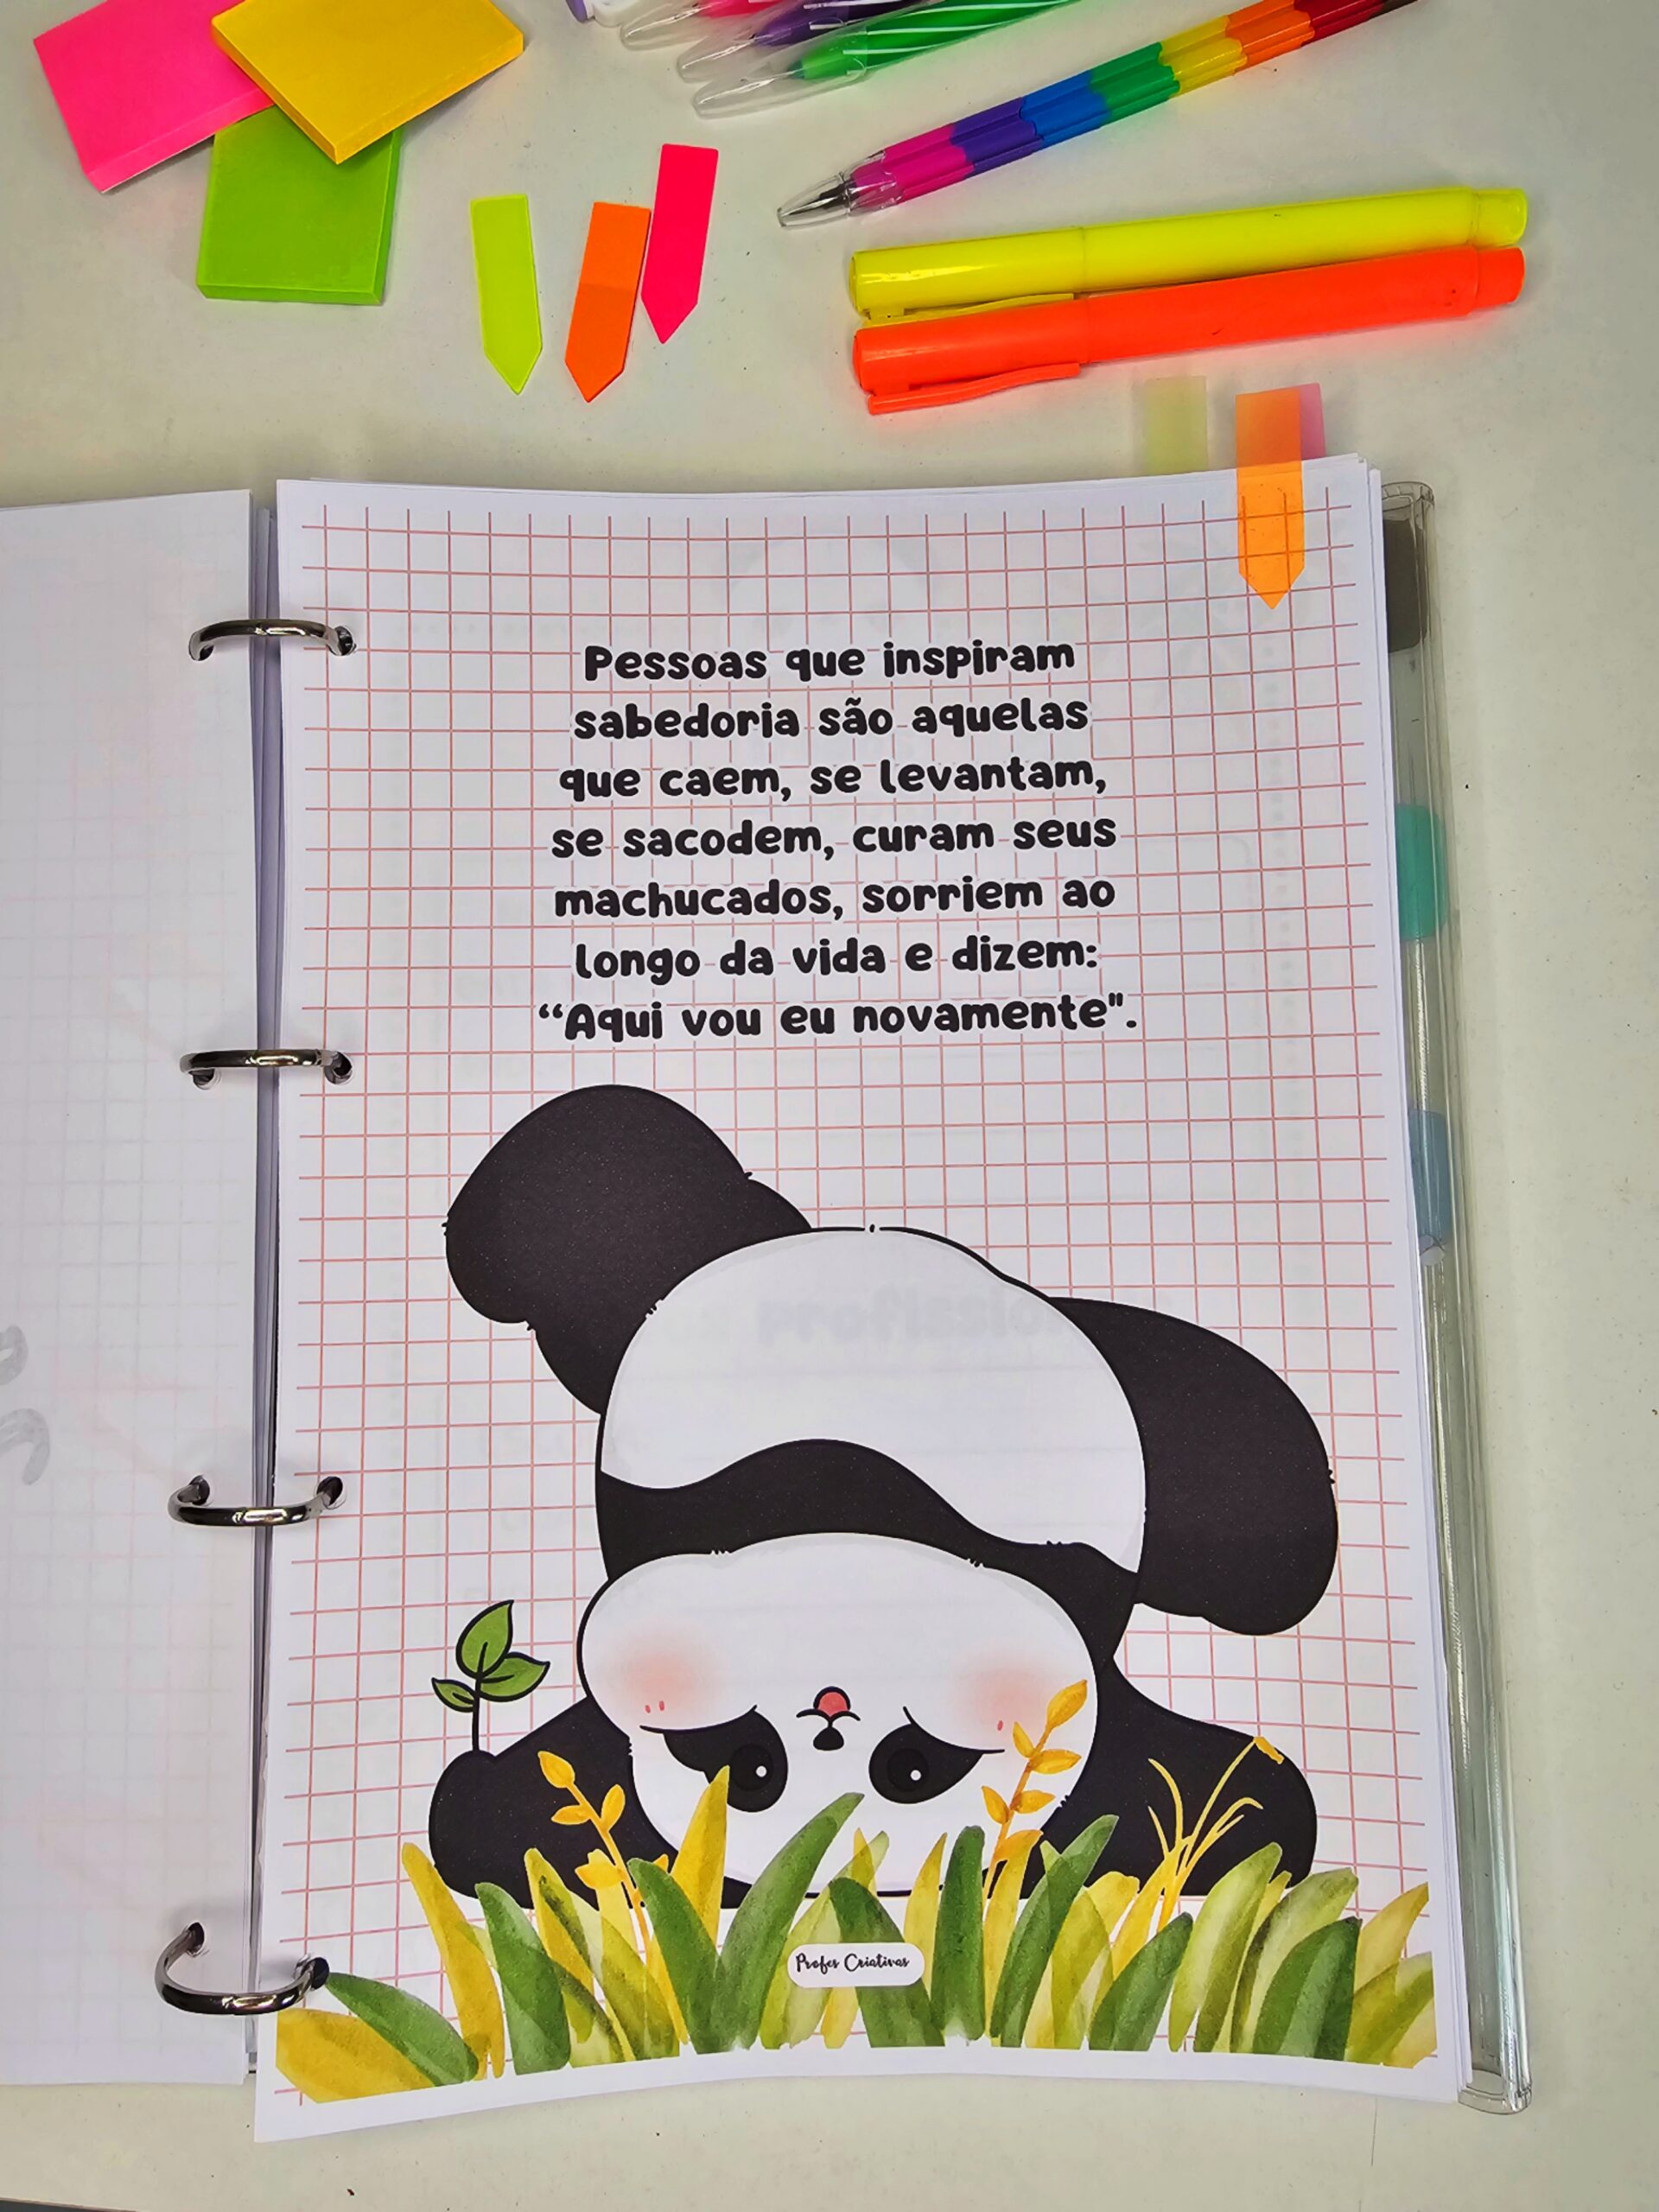 Pessoas que inspiram
sabedoria são aquelas
que caem, se levantam,
se sacodem, curam seus
machucados, sorriem ao
longo da vida e dizem:
“Aqui vou eu novamente".
Profes Criativas